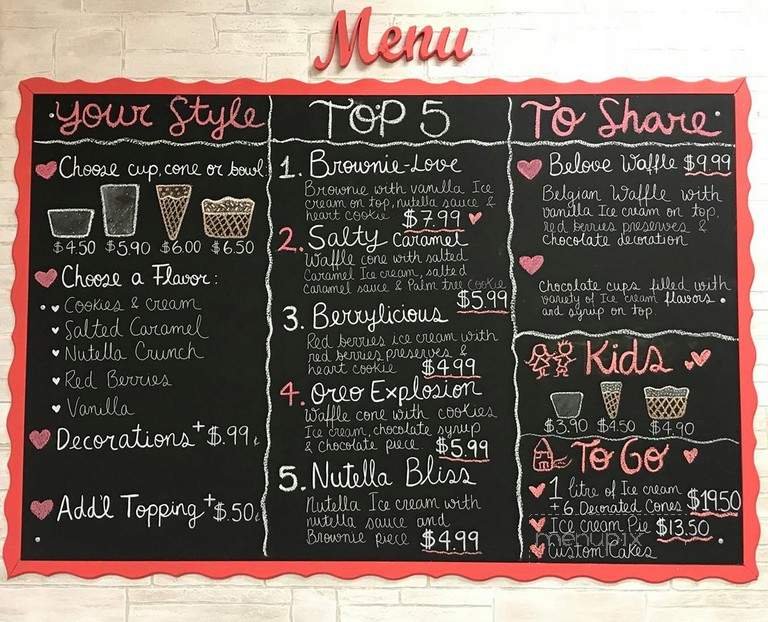 Menu
Your Style
Choose cup, cone or bowl
$4.50 $5.90 $6.00 $6.50
Choose a Flavor:
Cookies & cream
Salted Caramel
Nutella Crunch
Red Berries
Vanilla
Decorations + $.99 ¢
Add'l Topping + $.50 ¢
TOP 5
1. Brownie-Love
Brownie with vanilla Ice
cream on top, nutella sauce &
heart cookie $7.99
2. Salty Caramel
Waffle cone with salted
Caramel Ice cream, salted
caramel sauce & Palm tree cookie
$5.99
3. Berrylicious
Red berries ice cream with
red berries preserves &
heart cookie $4.99
4. Oreo Explosion
Waffle cone with cookies
Ice cream, chocolate syrup
& chocolate piece $5.99
5. Nutella Bliss
Nutella Ice cream with
nutella sauce and
Brownie piece $4.99
To Share
Belove Waffle $9.99
Belgian Waffle with
vanilla Ice cream on top,
red berries preserves &
chocolate decoration
Chocolate cups filled with
variety of Ice cream flavors
and syrup on top.
Kids
$3.90 $4.50 $4.90
To Go
1 litre of Ice cream
+ 6 Decorated Cones $19.50
Ice cream Pie $13.50
Custom Cakes
menupix